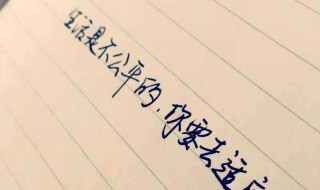 生活是不公平的,你要去适